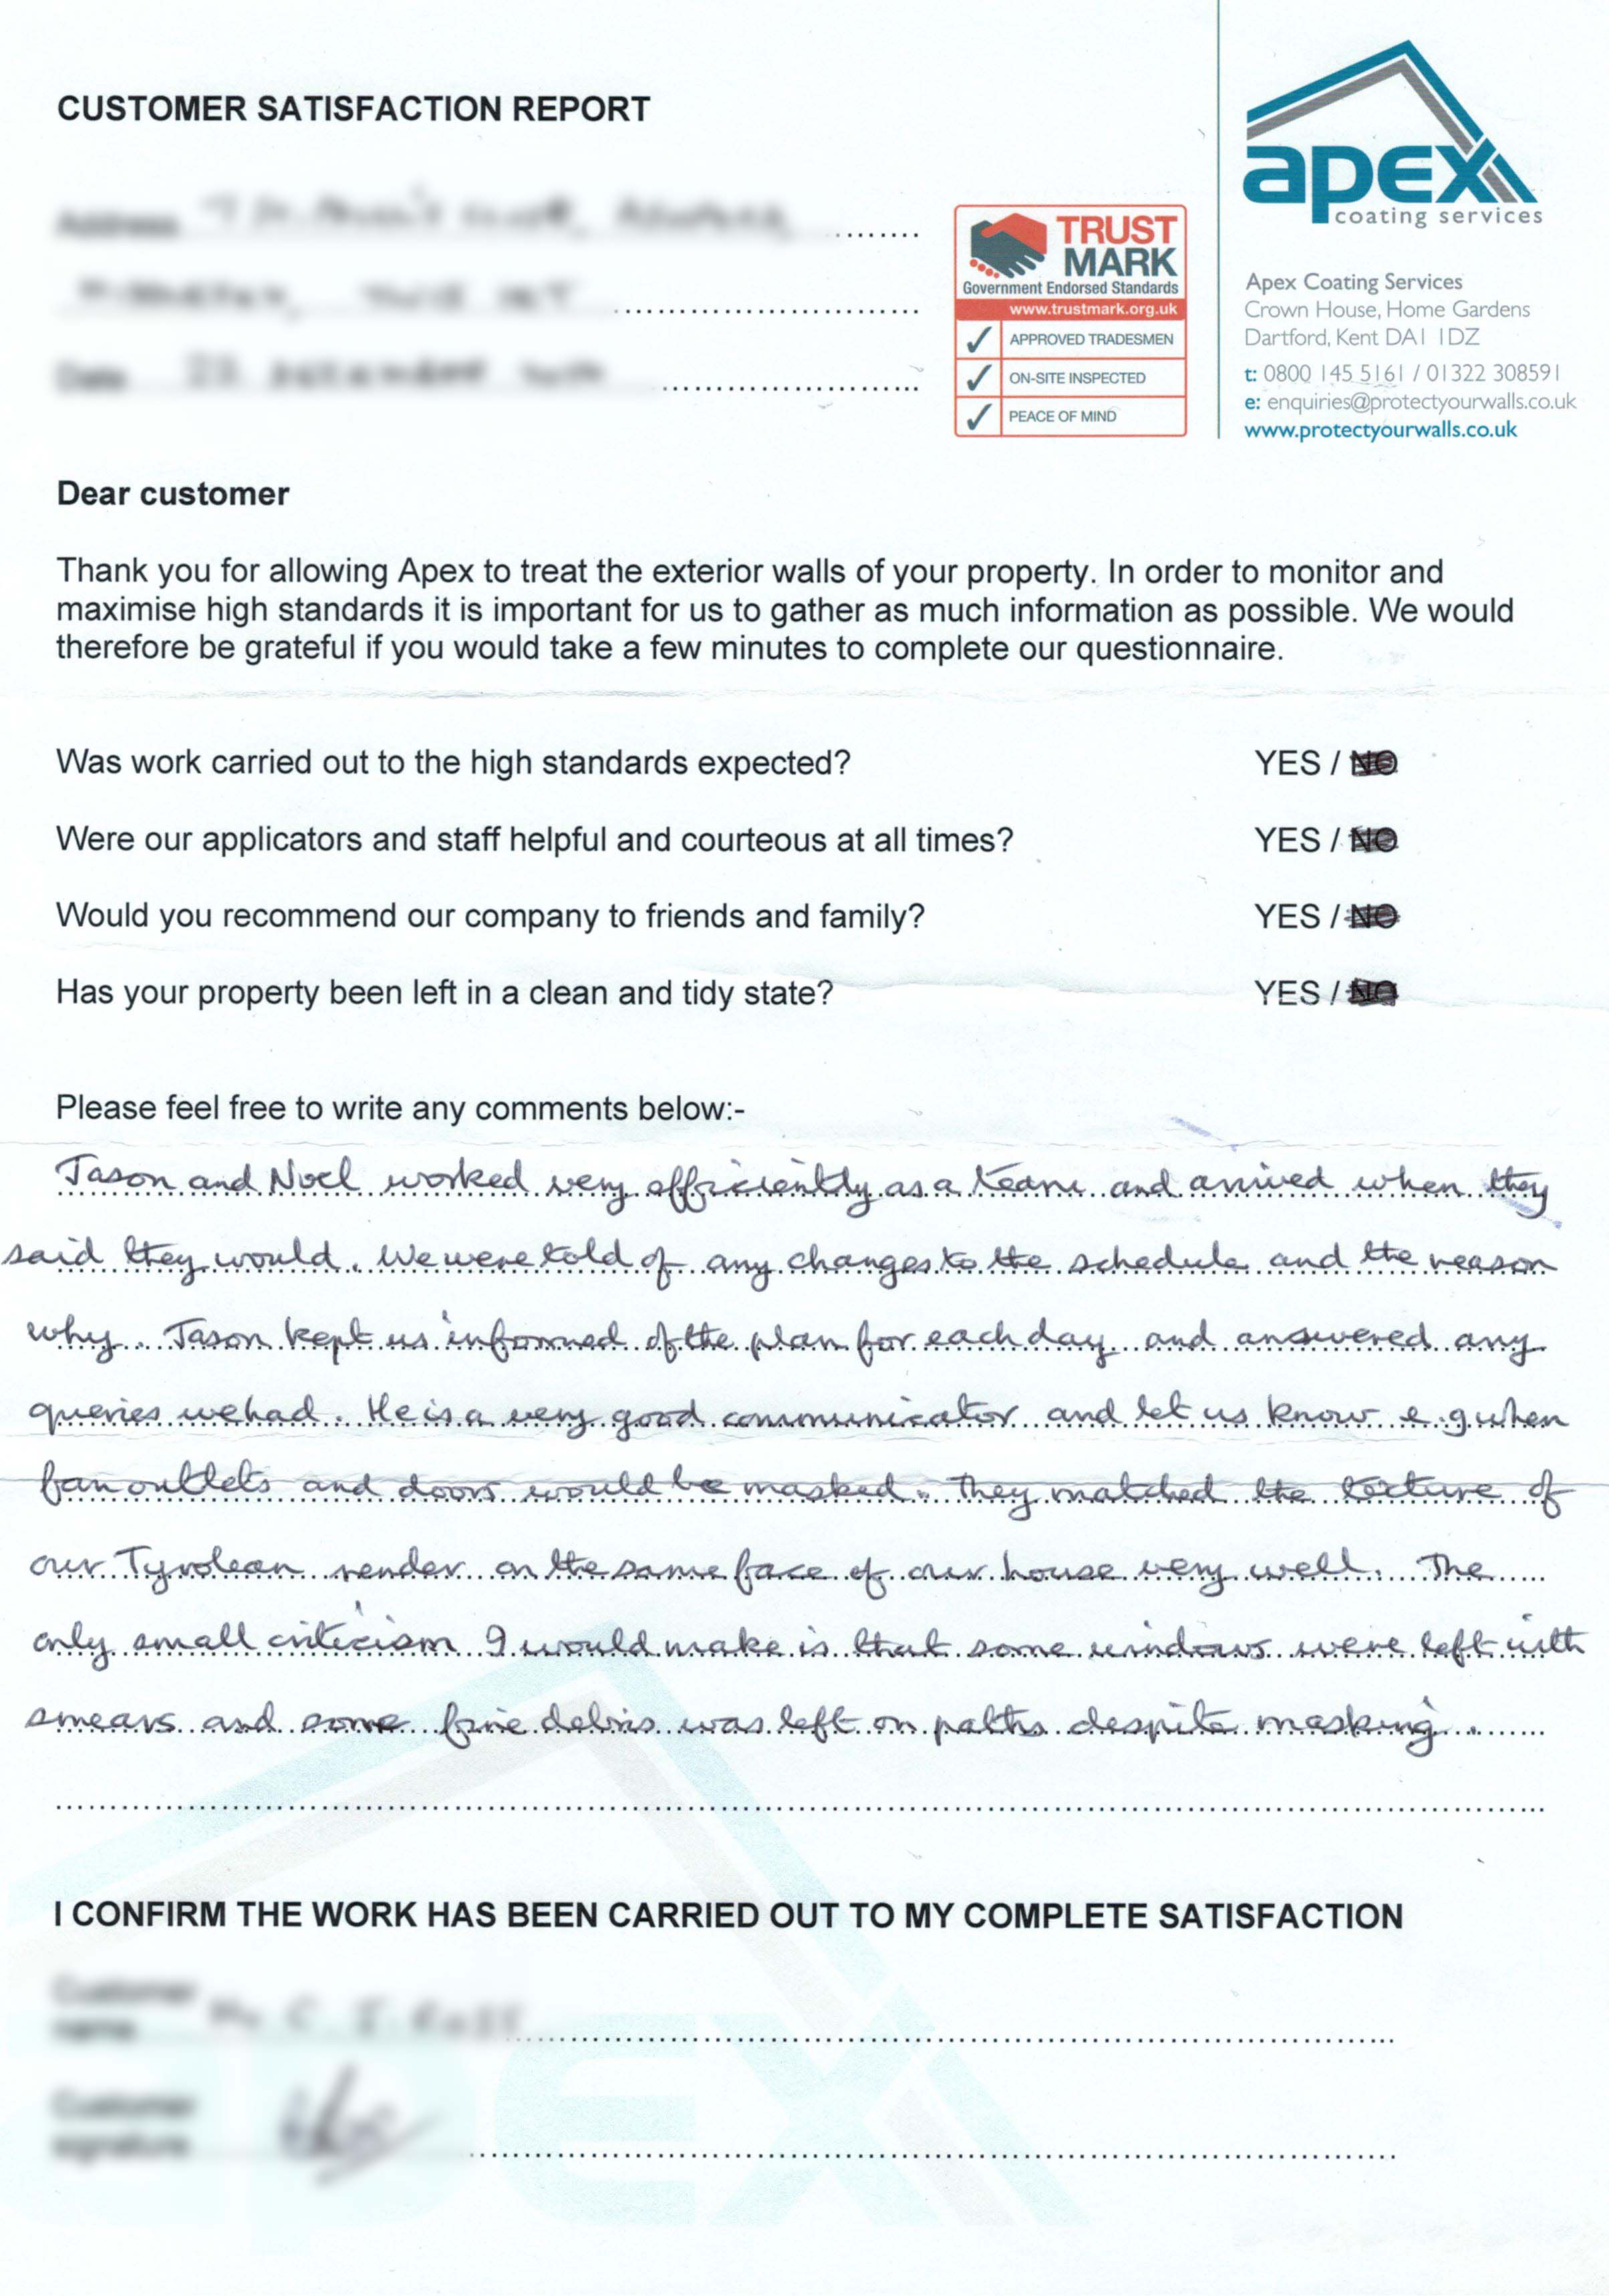 CUSTOMER SATISFACTION REPORT
apex
coating services
TRUST
MARK
Government Endorsed Standards
www.trustmark.org.uk
APPROVED TRADESMEN
ON-SITE INSPECTED
PEACE OF MIND
Apex Coating Services
Crown House, Home Gardens
Dartford, Kent DA1 1DZ
t: 0800 145 5161 / 01322 308591
e: enquiries@protectyourwalls.co.uk
www.protectyourwalls.co.uk
Dear customer
Thank you for allowing Apex to treat the exterior walls of your property. In order to monitor and
maximise high standards it is important for us to gather as much information as possible. We would
therefore be grateful if you would take a few minutes to complete our questionnaire.
Was work carried out to the high standards expected? YES / NO
Were our applicators and staff helpful and courteous at all times? YES / NO
Would you recommend our company to friends and family? YES / NO
Has your property been left in a clean and tidy state? YES / NO
Please feel free to write any comments below:-
Jason and Noel worked very efficiently as a team and arrived when they
said they would. We were told of any changes to the schedule and the reason
why. Jason kept us informed of the plan for each day and answered any
queries we had. He is a very good communicator and let us know e.g when
fan outlets and doors would be masked. They matched the texture of
our Tyrolean render on the same face of our house very well. The
only small criticism I would make is that some windows were left with
smears and some fine debris was left on paths despite masking.
I CONFIRM THE WORK HAS BEEN CARRIED OUT TO MY COMPLETE SATISFACTION